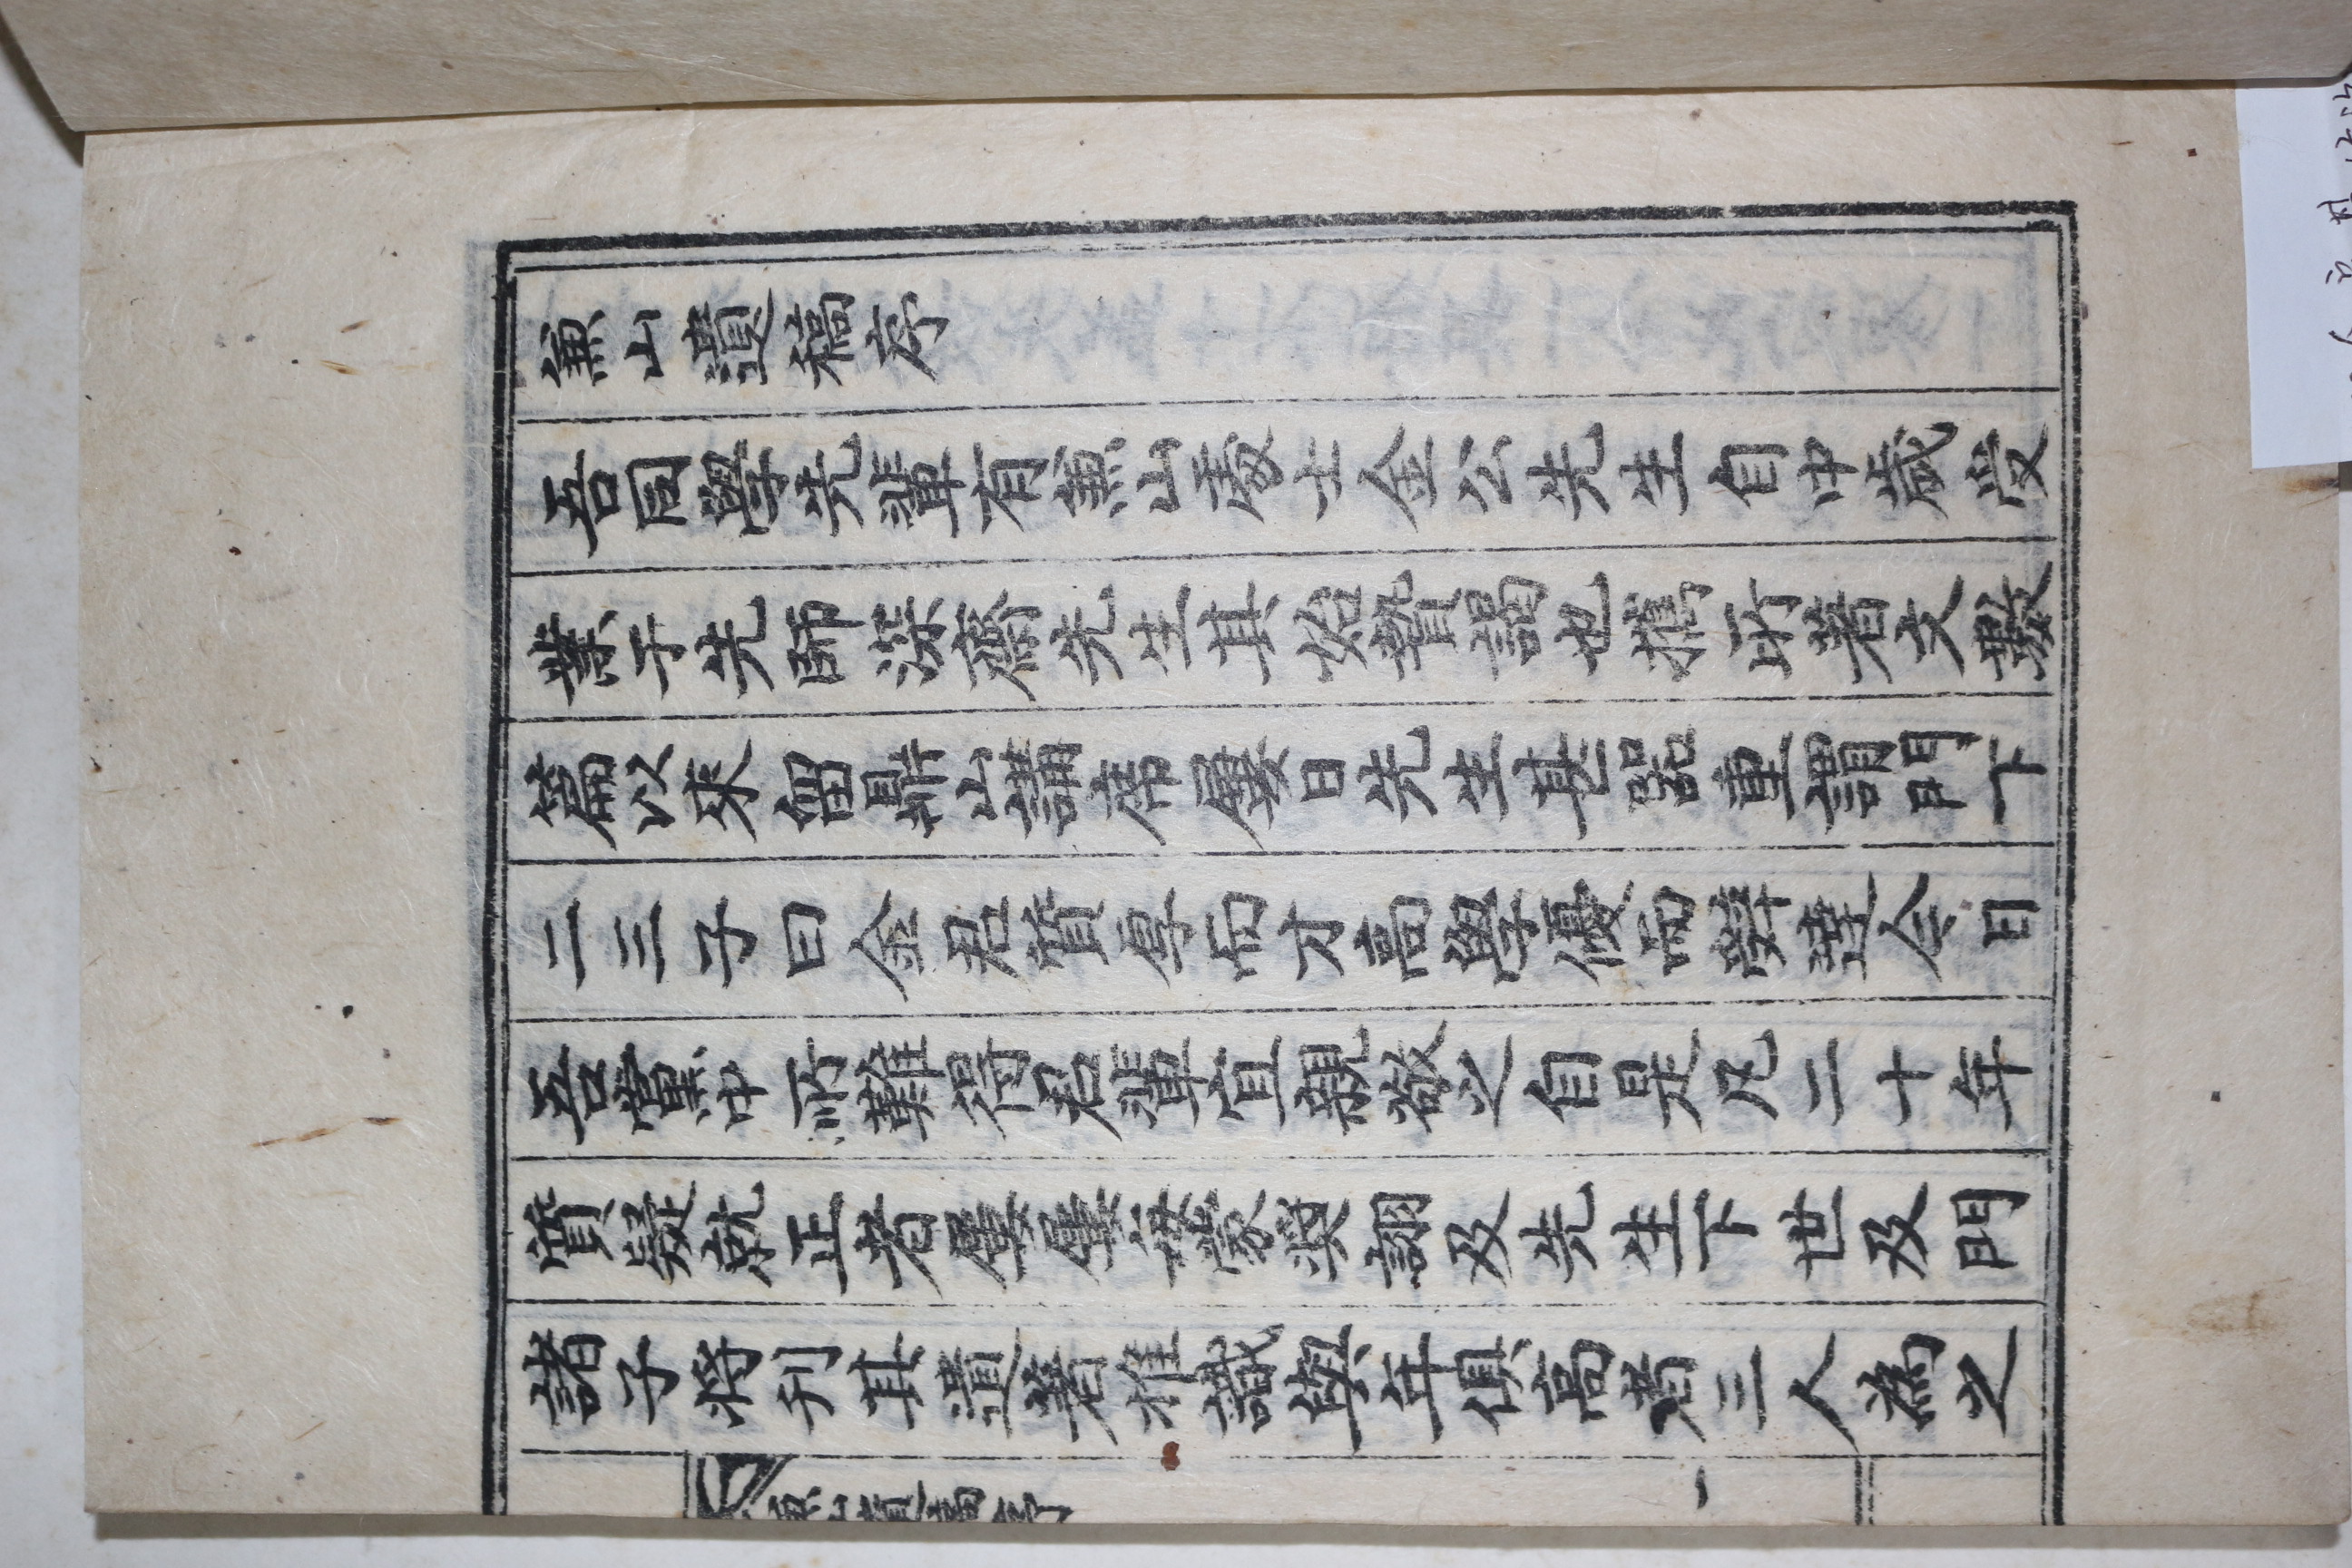 兼山遺稿序
吾同學先輩有兼山處士金公先生自中歲受
業于先師深齋先生其始贄謁也攜所著文數
篇以來留鼎山講席屢日先生甚器重謂門下
二三子曰金君質厚而才高學優而辭達今日
吾黨中所難得君輩宜親敬之自是凡二十年
質疑就正者屢屢每蒙奨詡及先生下世及門
諸子将刊其遺著推識與年俱高者三人為之
兼山遺稿序
一